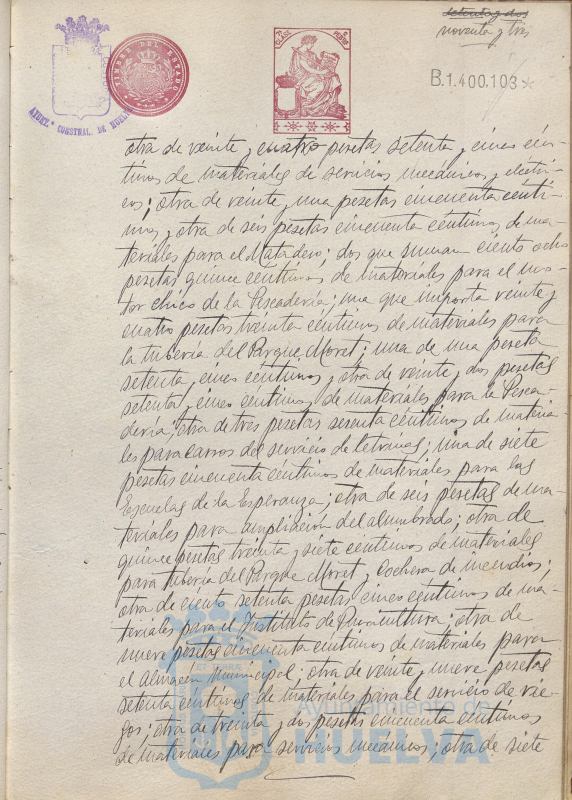 setenta y dos
noventa y tres
AYUNT.º CONSTNAL. DE HUELVA
TIMBRE DEL ESTADO
7ª CLASE
B.1.400.103*
otra de veinte y cuatro pesetas setenta y cinco cén-
timos de materiales de servicios mecánicos y eléctri-
cos; otra de veinte y una pesetas cincuenta cénti-
mos y otra de seis pesetas cincuenta céntimos de ma-
teriales para el Matadero; dos que suman ciento ocho
pesetas quince céntimos de materiales para el mo-
tor chico de la Pescadería; una que importa veinte y
cuatro pesetas treinta céntimos de materiales para
la tubería del Parque Moret; una de una peseta
setenta y cinco céntimos y otra de veinte y dos pesetas
setenta y cinco céntimos de materiales para la Pesca-
dería; otra de tres pesetas sesenta céntimos de materia-
les para carros del servicio de letrinas; una de siete
pesetas cincuenta céntimos de materiales para las
Escuelas de la Esperanza; otra de seis pesetas de ma-
teriales para ampliación del alumbrado; otra de
quince pesetas treinta y siete céntimos de materiales
para tubería del Parque Moret y Cochera de incendios;
otra de ciento setenta pesetas cinco céntimos de ma-
teriales para el Instituto de Puericultura; otra de
nueve pesetas cincuenta céntimos de materiales para
el Almacén Municipal; otra de veinte y nueve pesetas
setenta céntimos de materiales para el servicio de rie-
gos; otra de treinta y dos pesetas cincuenta céntimos
de materiales para servicios mecánicos; otra de siete
Ayuntamiento de
HUELVA